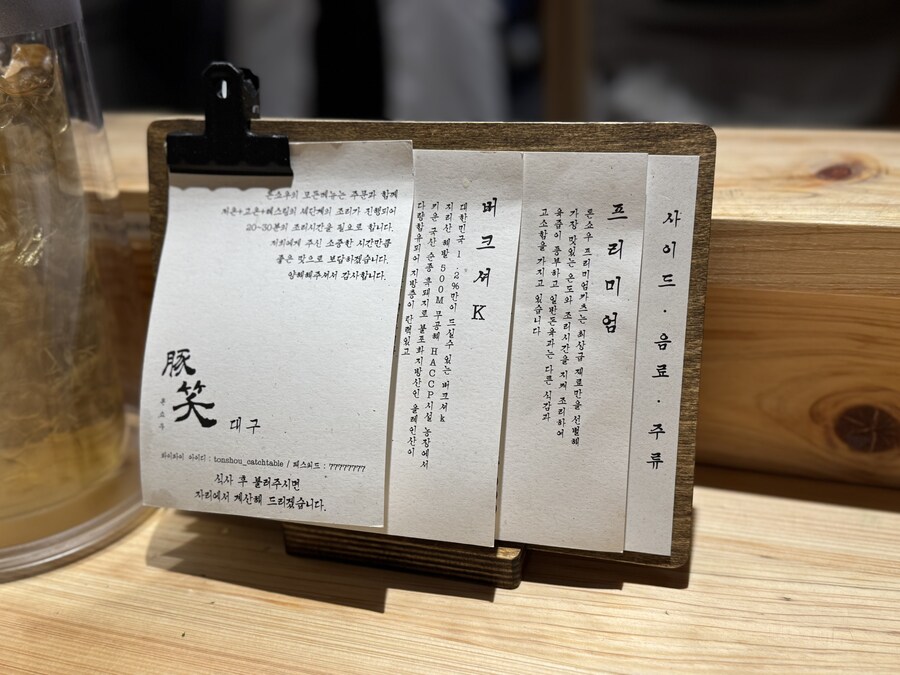 톤쇼우의 모든메뉴는 주문과 함께
저온+고온+레스팅의 세단계의 조리가 진행되어
20-30분의 조리시간을 필요로 합니다.
저희에게 주신 소중한 시간만큼
좋은 맛으로 보답하겠습니다.
양해해주셔서 감사합니다.
豚笑
톤쇼우
대구
와이파이 아이디 : tonshou_catchtable / 패스워드 : 77777777
식사 후 불러주시면
자리에서 계산해 드리겠습니다.
버크셔K
대한민국 1.2%만이 드실수 있는 버크셔k
지리산 해발 500M 무공해 HACCP시설 농장에서
키운 국산 순종 흑돼지로 불포화지방산인 올레인산이
다량함유되어 지방층이 탄력있고
프리미엄
톤쇼우 프리미엄카츠는 최상급 재료만을 선별해
가장 맛있는 온도와 조리시간을 지켜 조리하여
육즙이 풍부하고 일반돈육과는 다른 식감과
고소함을 가지고 있습니다
사이드 · 음료 · 주류